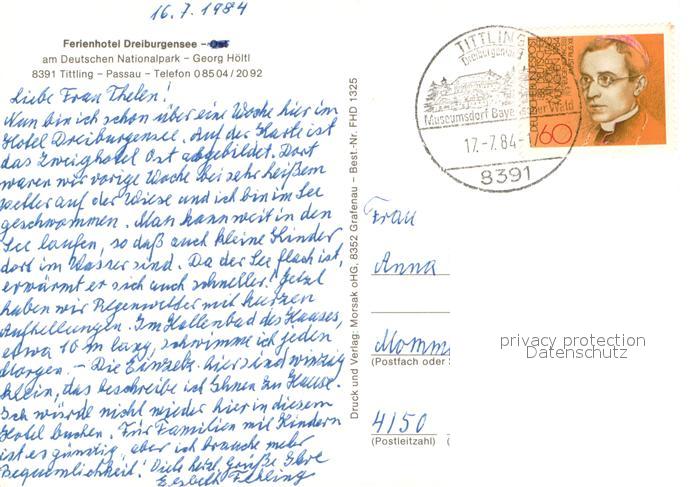 16.7.1984
Ferienhotel Dreiburgensee – Ost
am Deutschen Nationalpark – Georg Höltl
8391 Tittling – Passau – Telefon 0 85 04 / 20 92
Liebe Frau Thelen!
Nun bin ich schon über eine Woche hier im
Hotel Dreiburgensee. Auf der Karte ist
das Zweighotel Ost abgebildet. Dort
waren wir vorige Woche bei sehr heißem
Wetter auf der Wiese und ich bin im See
geschwommen. Man kann weit in den
See laufen, so daß auch kleine Kinder
dort im Wasser sind. Da der See flach ist,
erwärmt er sich auch schneller. Jetzt
haben wir Regenwetter mit kurzen
Aufhellungen. Im Hallenbad des Hauses,
etwa 10 m lang, schwimme ich jeden
Morgen. – Die Einzelz. hier sind winzig
klein, das beschreibe ich Ihnen zu Hause.
Ich würde nicht wieder hier in diesem
Hotel buchen. Für Familien mit Kindern
ist es günstig, aber ich brauche mehr
Bequemlichkeit! Viele herzl. Grüße Ihre
Elsbeth
Druck und Verlag: Morsak oHG, 8352 Grafenau – Best.-Nr. FHD 1325
TITTLING
Dreiburgenland
Museumsdorf Bayerischer Wald
17.-7.84-
8391
60
Frau
Anna
Momms
(Postfach oder
4150
(Postleitzahl)
privacy protection
Datenschutz